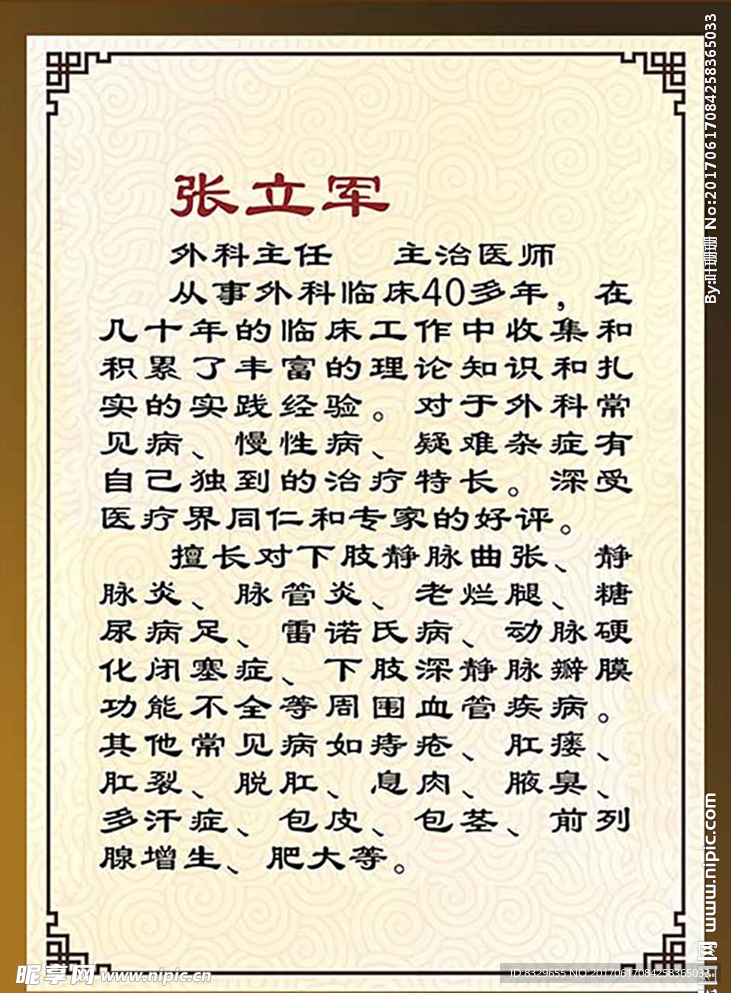 张立军
外科主任 主治医师
从事外科临床40多年，在
几十年的临床工作中收集和
积累了丰富的理论知识和扎
实的实践经验。对于外科常
见病、慢性病、疑难杂症有
自己独到的治疗特长。深受
医疗界同仁和专家的好评。
擅长对下肢静脉曲张、静
脉炎、脉管炎、老烂腿、糖
尿病足、雷诺氏病、动脉硬
化闭塞症、下肢深静脉瓣膜
功能不全等周围血管疾病。
其他常见病如痔疮、肛瘘、
肛裂、脱肛、息肉、腋臭、
多汗症、包皮、包茎、前列
腺增生、肥大等。
By:叶珊珊 No:20170617084258365033
www.nipic.com
昵享网 www.nipic.cn
ID:8329655 NO:20170617084258365033